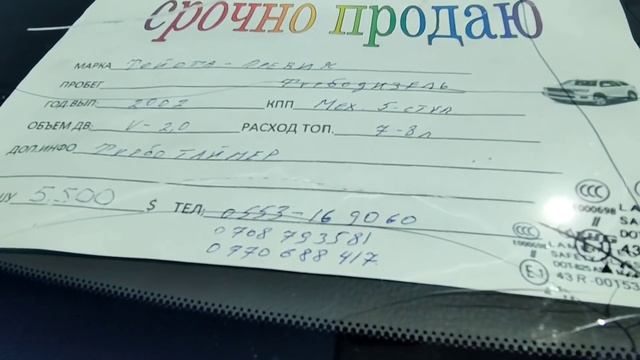 срочно продаю
МАРКА Тойота-
ПРОБЕГ Турбодизель
ГОД.ВЫП. 2002 КПП Мех. 5-ступ
ОБЪЕМ ДВ. V-2,0 РАСХОД ТОП. 7-8л
ДОП.ИНФО Турбо ТАЙМЕР
5.500 $ ТЕЛ. 0553-16 9060
0708 793581
0770 688 417
CCC
E000698
II
E000698
II
43 R-00153